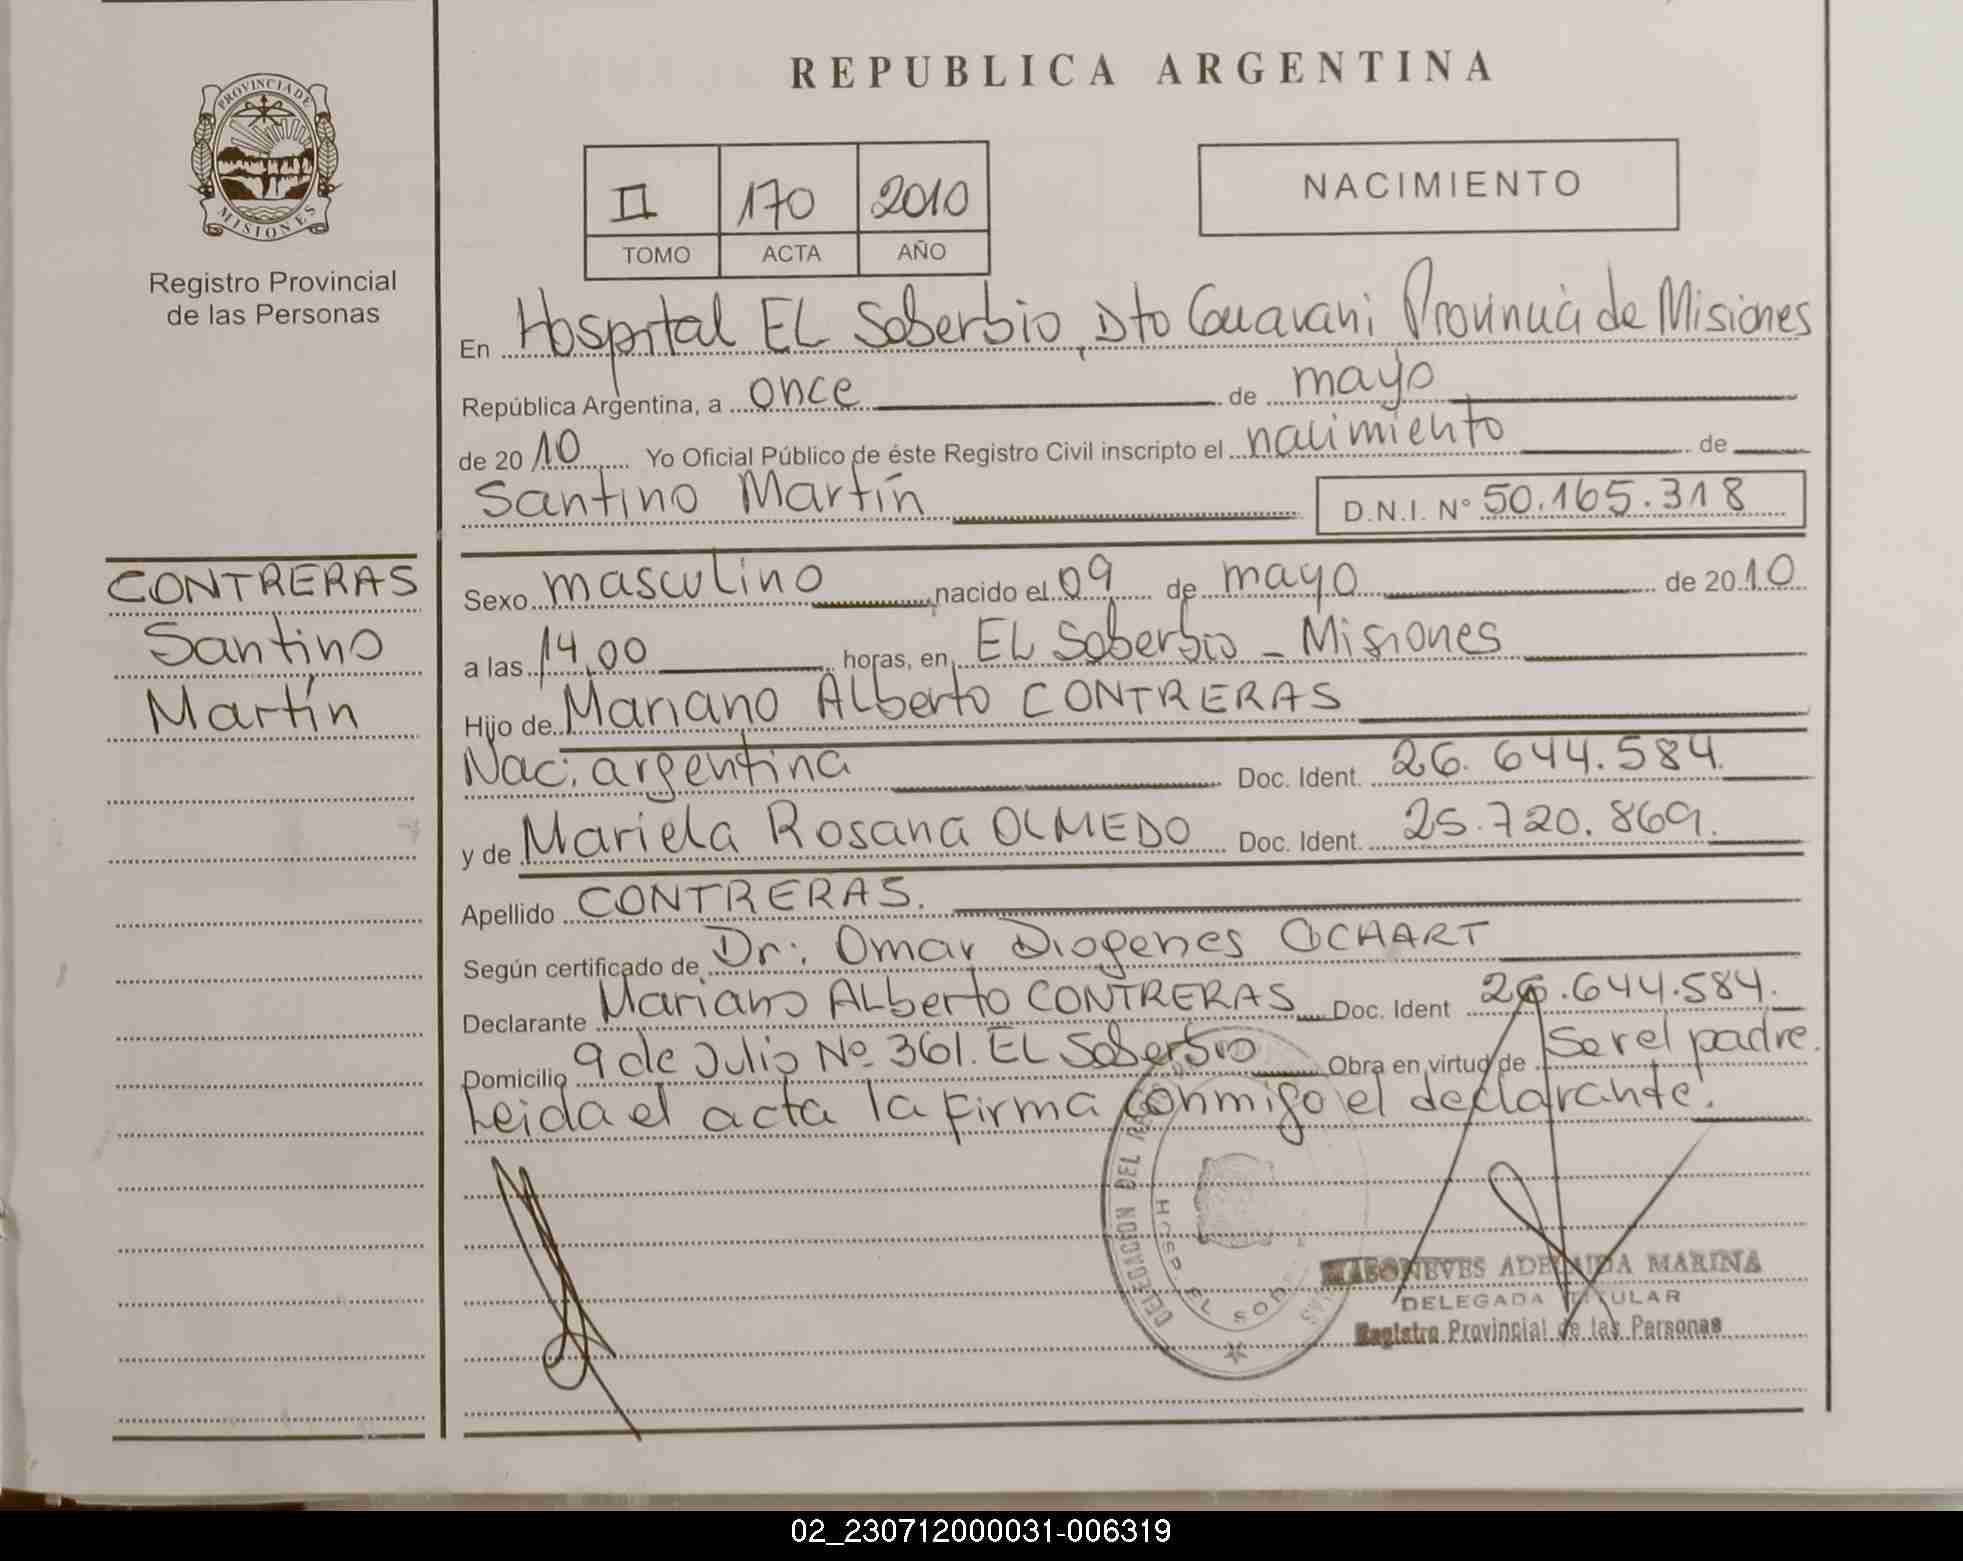 REPUBLICA ARGENTINA
PROVINCIA DE
MISIONES
Registro Provincial
de las Personas
II 170 2010
TOMO ACTA AÑO
NACIMIENTO
En Hospital EL Soberbio, Dto Guarani Provincia de Misiones
República Argentina, a once de mayo
de 2010 Yo Oficial Público de éste Registro Civil inscripto el nacimiento de
Santino Martín D.N.I. N° 50.165.318
CONTRERAS
Santino
Martín
Sexo masculino nacido el 09 de mayo de 2010
a las 14,00 horas, en EL Soberbio - Misiones
Hijo de Mariano ALberto CONTRERAS
Nac: argentina Doc. Ident. 26.644.584.
y de Mariela Rosana OLMEDO Doc. Ident. 25.720.869.
Apellido CONTRERAS.
Según certificado de Dr: Omar Diogenes OCHART
Declarante Mariano ALberto CONTRERAS Doc. Ident 26.644.584.
Domicilio 9 de Julio Nº 361. EL Soberbio Obra en virtud de Ser el padre.
Leida el acta la firma conmigo el declarante.
DELEGACION DEL
HOSP. EL SOB
ADELAIDA MARINA
DELEGADA TITULAR
Registro Provincial de las Personas
02_230712000031-006319